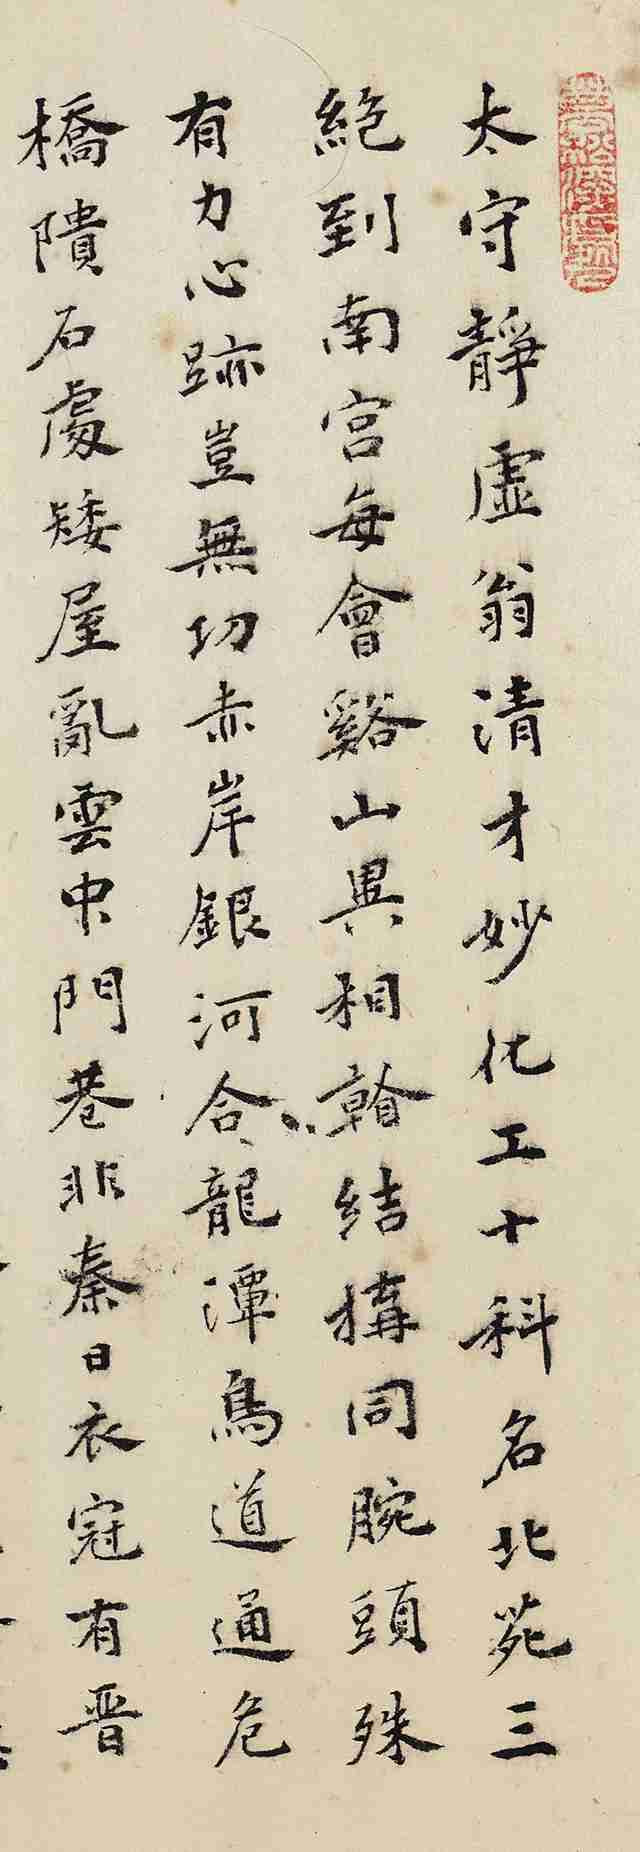 太守靜虛翁清才妙化工十科名北苑三
絕到南宮每會谿山異相簪結構同腕頭殊
有力心跡豈無功赤岸銀河合龍潭鳥道通危
橋隤石處矮屋亂雲中門巷非秦日衣冠有晋